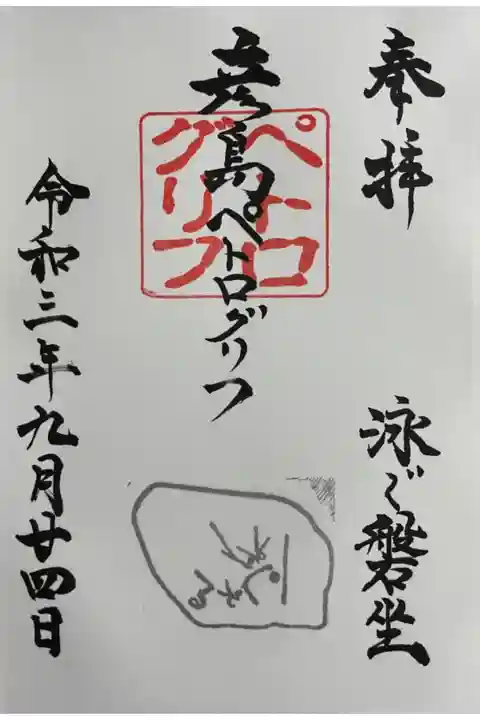 奉拝
泳ぐ磐坐
彦島ペトログリフ
ペトロ
グリフ
令和三年九月廿四日